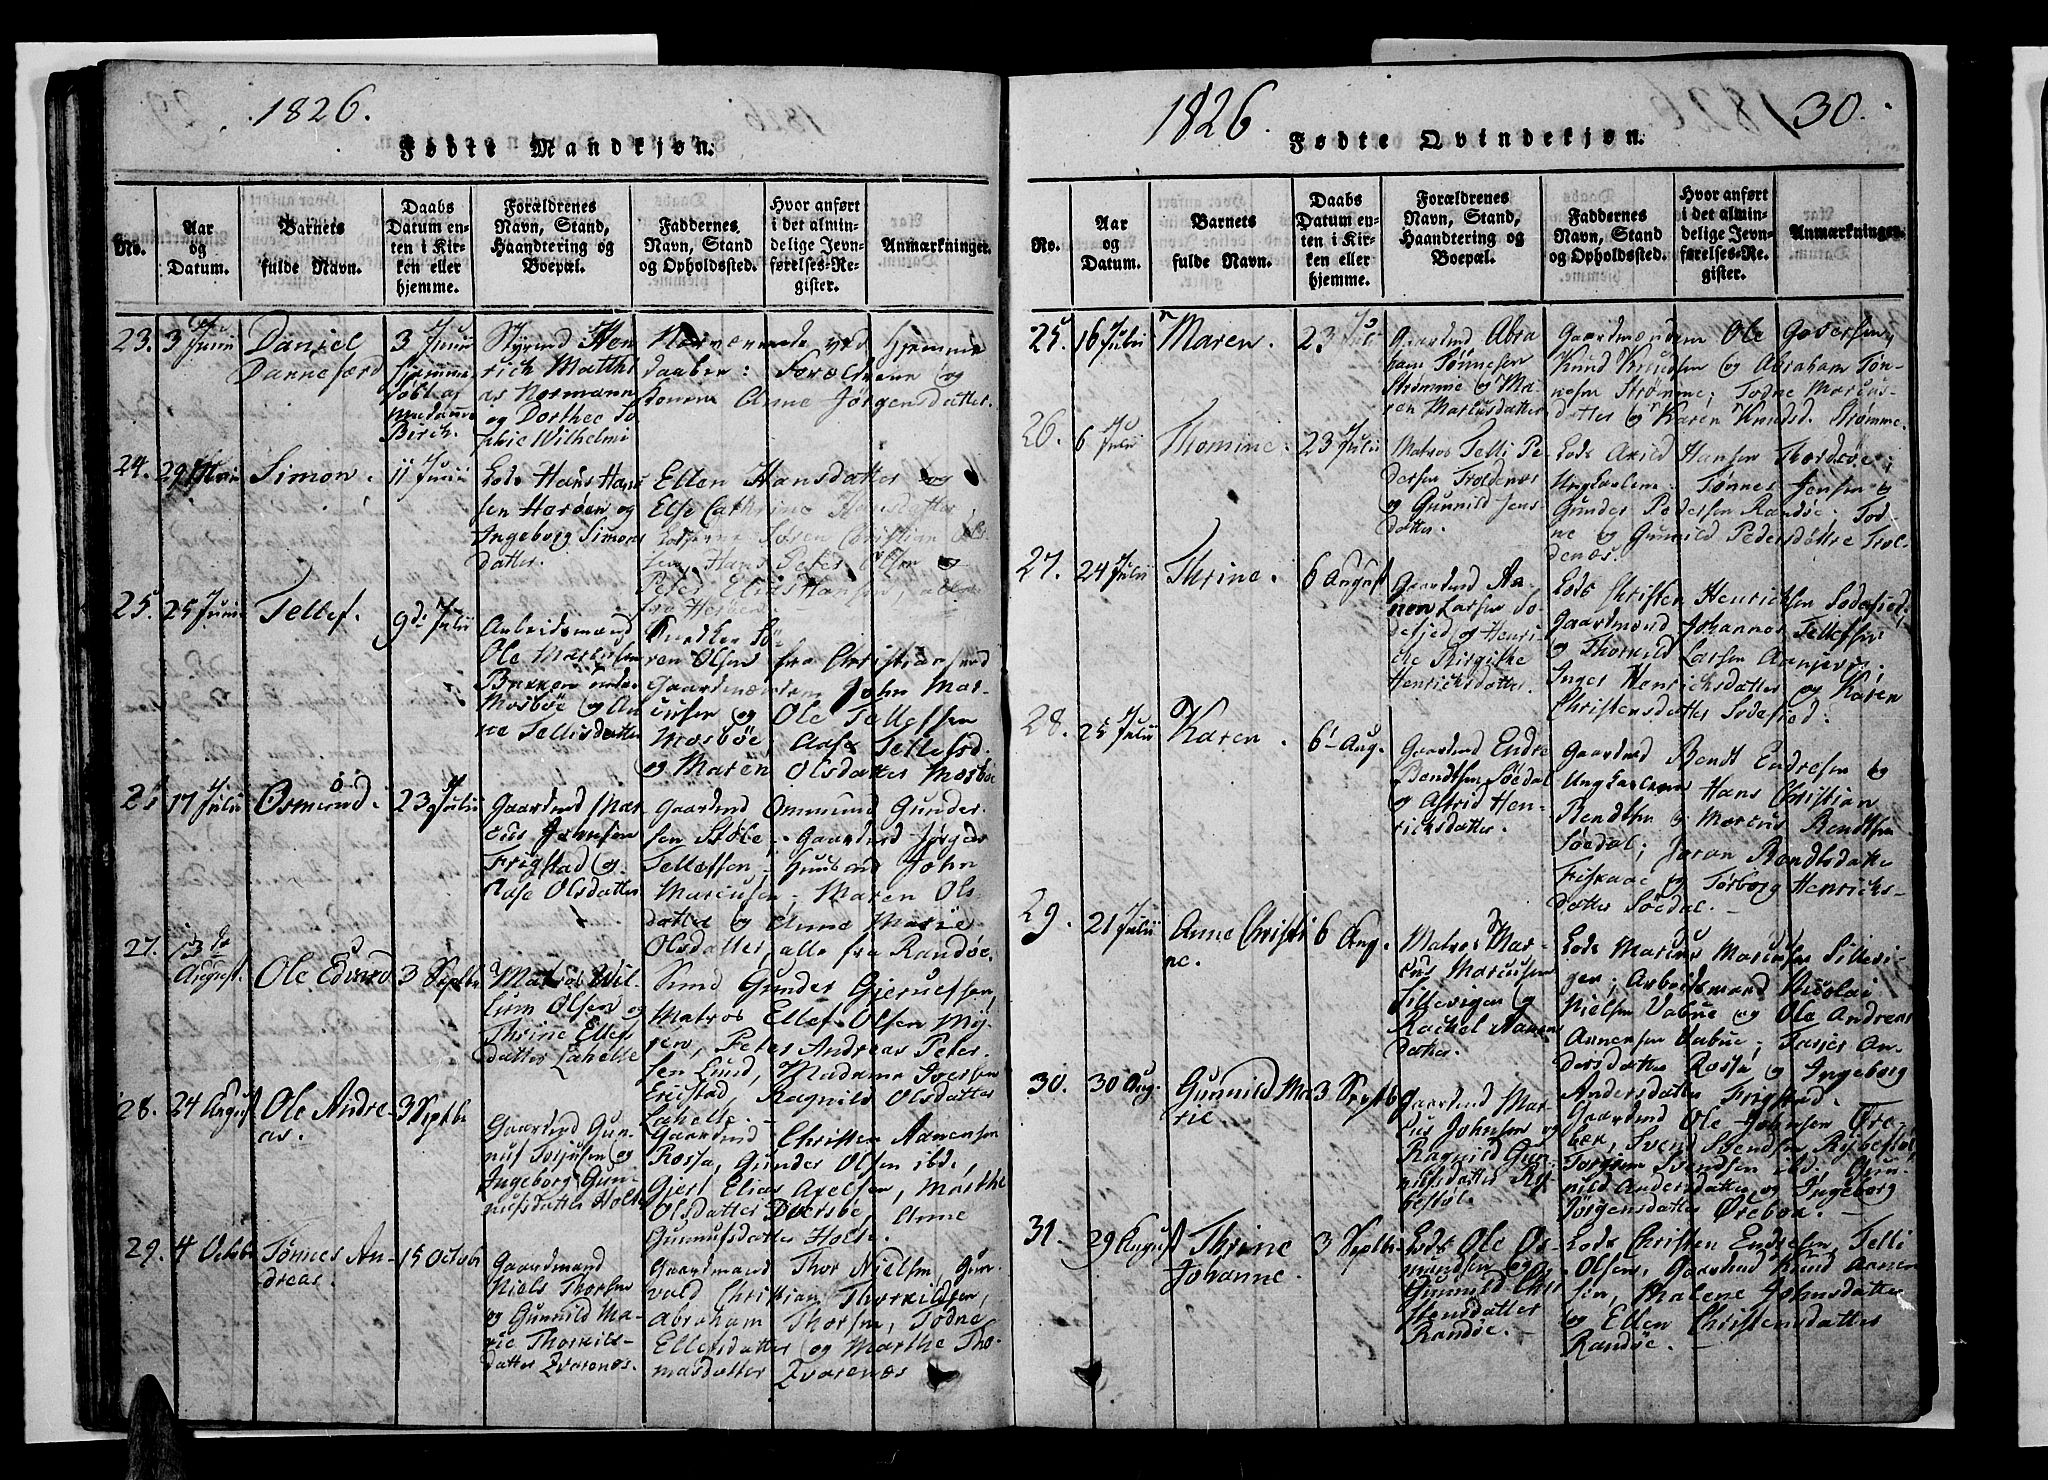 1826.
Fødte Mandkjøn.
No.
Aar
og
Datum.
Barnets
fulde Navn.
Daabs
Datum en-
ten i Kir-
ken eller
hjemme.
Forældrenes
Navn, Stand,
Haandtering og
Boepæl.
Faddernes
Navn, Stand
og Opholdssted.
Hvor anført
i det almin-
delige Jevn-
førelses-Re-
gister.
Anmærkninger.
23.
3 Junii
Daniel
Dannefærd
3 Junii
hjemme
døbt af
Madame
Birch.
Styrmd Hen-
rich Matthi-
as Normann
og Dorthee So-
phie Wilhelmi
Nærværende ved Hjemme
daaben: Forældrene og
Konene Anne Jørgensdatter.
24.
29 Mai
Simon.
11 Junii
Lods Hans Han-
sen Herøen og
Ingeborg Simons
datter.
Ellen Hansdatter og
Else Cathrine Hansdatter,
Lodserne Søren Christian Ol-
sen, Hans Peter Olsen og
Peder Elias Hansen, alle
fra Herøen.
25.
25 Junii
Tellef.
9d. Julii
Arbeidsmand
Ole Marcussen
Bakken under
Mosbøe og An-
ne Tellisdatter
Snedker Sø-
ren Olsen fra Christiansand
Gaardmændene John Mar-
cussen og Ole Tellefsen
Mosbøe Aase Tellefsd.
og Maren Olsdatter Mosbøe
17 Julii
Osmund.
23 Julii
Gaardmd Mar-
cus Johnsen
Frigstad og
Aase Olsdatter
Gaardmd Ommund Gunder-
sen Støle, Gaardmd Jørgen
Tellefsen, Huusmd John
Marcusen, Maren Ols-
datter og Anne Marie
Olsdatter, alle fra Randøe.
27.
13de
August.
Ole Edvard
3 Septbr
Matros Wil-
lum Olsen og
Thrine Ellefs-
datter Lahelle
Smed Gunder Gjerulfsen,
Matros Ellef Olsen My-
ren, Peter Andreas Peter-
sen Lund, Madame Iversen
Ericstad, Ragnild Olsdatter
Lahelle.
28.
24 August
Ole Andre-
as.
3 Septbr
Gaardmd Gun-
nuf Torjusen og
Ingeborg Gun-
nufsdatter Holte
Gaardmd Christen Aanensen
Rossa, Gunder Olsen ibd.,
Gjert Elias Axelsen, Marthe
Olsdatter Dversbe, Anne
Gunnufsdatter Holte.
29.
4 Octobr
Tønnes An-
dreas.
15 Octobr
Gaardmand
Niels Thorsen
og Gunnild Ma-
rie Thorkils-
datter Qvarenæs.
Gaardmand Thor Nielsen, Gun-
vald Christian Thorkildsen,
Abraham Thorsen, Todne
Ellefsdatter og Marthe Tho-
masdatter Qvarenæs
1826.
30.
Fødte Qvindekjøn.
No.
Aar
og
Datum.
Barnets
fulde Navn.
Daabs
Datum en-
ten i Kir-
ken eller
hjemme.
Forældrenes
Navn, Stand,
Haandtering og
Boepæl.
Faddernes
Navn, Stand
og Opholdssted.
Hvor anført
i det almin-
delige Jevn-
førelses-Re-
gister.
Anmærkninger.
25.
16 Julii
Maren.
23 Juli
Gaardmd Abra-
ham Tønnesen
Strømme og Ma-
ren Marcusdatter
Gaardmændene Ole Govertsen,
Knud Knudsen og Abraham Tøn-
nesen Strømme; Todne Marcus-
datter og Karen Knudsd. Strømme.
26.
6 Julii
Thomine.
23 Julii
Matros Telli Pe-
dersen Troldenæs
og Gunnild Jens-
datter.
Lods Axild Hansen Thordsøe;
Ungkarlene Tønnes Jensen og
Gunder Pedersen Randøe. Tod-
ne og Gunnild Pedersdøttre Trol-
denæs.
27.
24 Julii
Thrine.
6 August
Gaardmd Aa-
non Larsen So-
defjed og Henri-
che Birgithe
Henrichsdatter.
Lods Christen Henrichsen Sodefjed,
Gaardmænd Johannes Tellefsen
og Thorkild Larsen Aanjevn;
Inger Henrichsdatter og Karen
Christensdatter Sodefjed.
28.
25 Julii
Karen.
6 Aug.
Gaardmd Endre
Bendtsen Søedal
og Astrid Hen-
richsdatter.
Gaardmd Bendt Endresen og
Ungkarlene Hans Christian
Bendtsen og Marcus Bendtsen
Søedal; Joran Bendtsdatter
Fiskaae og Torborg Henrichs-
datter Søedal.
29.
21 Julii
Anne Christi-
ne.
6 Aug.
Matros Mar-
cus Marcusen
Sillevigen og
Rachel Aanens
datter.
Lods Marcus Marcusen Sillevi-
gen; Arbeidsmand Nicolai
Nielsen Vabue og Ole Andreas
Annensen Vabue; Tarjer An-
dersdatter Rossa og Ingeborg
Andersdatter Frigstad.
30.
30 Aug.
Gunnild Ma-
rie.
3 Septb
Gaardmd Mar-
cus Johnsen og
Ragnild Gun-
nufsdatter Ry-
bestøl.
Gaardmd Ole Johnsen Øre-
bæk, Svend Svendsen Rybestøl,
Torgim Svendsen ibd., Gun-
nild Andersdatter og Ingeborg
Jørgensdatter Ørebæk.
31.
29 August
Thrine
Johanne.
3 Septbr
Lods Ole Os-
mundsen og
Gunnild Chri-
stensdatter
Randøe.
Lods Christen Endresen, Telli
Olsen, Gaardmd Knud Aanen-
sen, Malene Johnsdatter
og Ellen Christensdatter
Randøe.